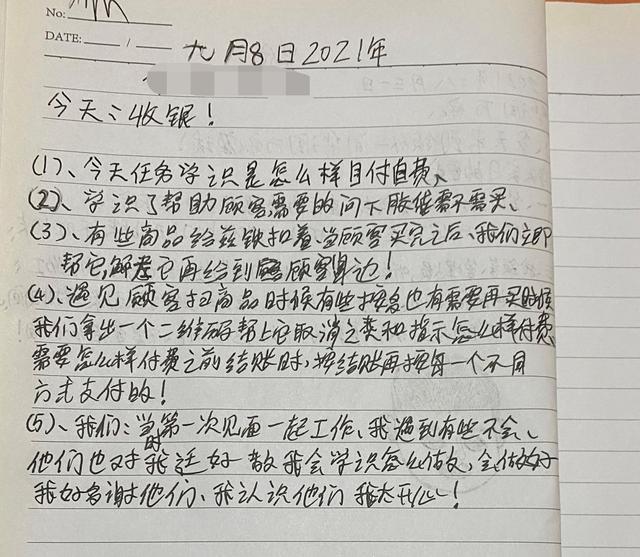 No:
DATE:
九月8日2021年
今天:收银!
(1)、今天任务学识是怎么样自付自费、
(2)、学识了帮助顾客需要的问下胀催需不需买、
(3)、有些商品给兹铁扣着、当顾客买完之后、我们立即
帮它解卷它再给到顾客身边!
(4)、遇见顾客扫商品时候有些按多也有需要再买时候
我们拿出一个二维码帮上它取消之类和指示怎么样付费
需要怎么样付费之前结账时,按结账再按每一个不同
方式支付的!
(5)、我们:当第一次见面一起工作、我遇到有些不会、
时
他们也对我还好教我会学识怎么做,会做好
我好多谢他们、我认识他们我太开心!